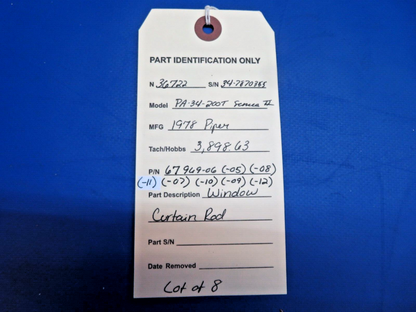 PART IDENTIFICATION ONLY
N 36722 S/N 34-7870355
Model PA-34-200T Seneca II
MFG 1978 Piper
Tach/Hobbs 3,898.63
P/N 67969-06 (-05) (-08)
(-11) (-07) (-10) (-09) (-12)
Part Description Window
Curtain Rod
Part S/N
Date Removed
Lot of 8